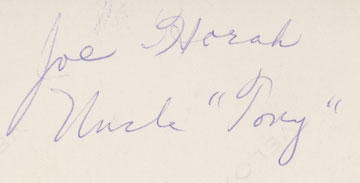 Joe Horah
Uncle "Tony"